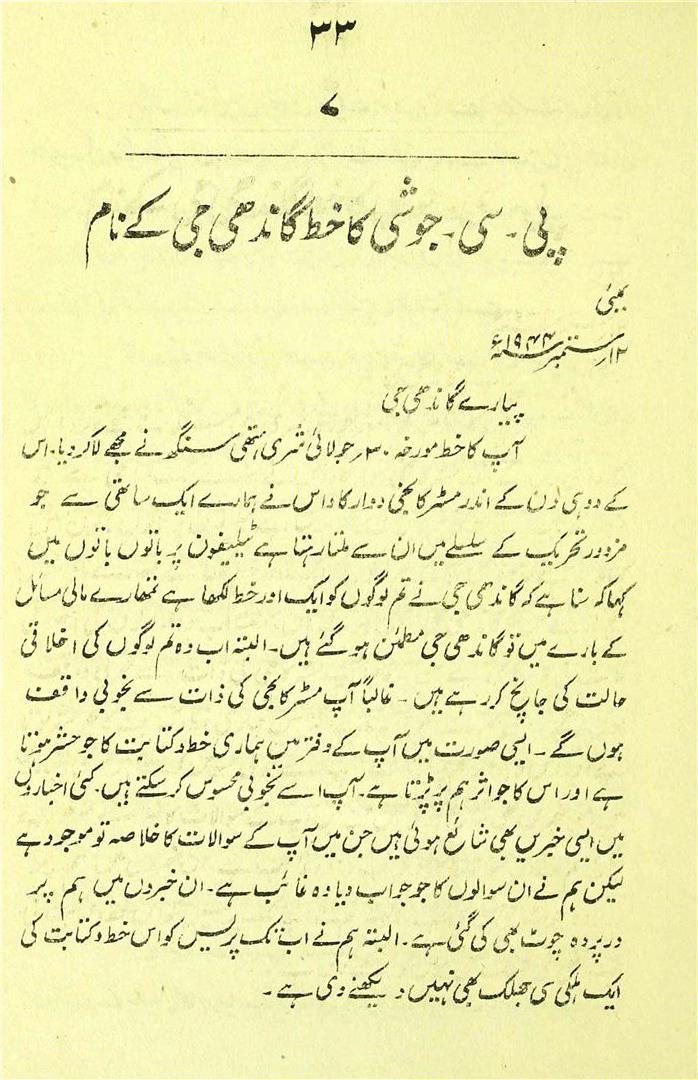 ۳۳
۷
پی۔ سی۔ جوشی کا خط گاندھی جی کے نام
بمبئی
۱۲ر ستمبر ۱۹۴۴ء
پیارے گاندھی جی
آپ کا خط مورخہ ۳۰ر جولائی شری ہتھی سنگھ نے مجھے لاکر دیا۔ اس
کے دو ہی دن کے اندر مسٹر کانجی دوارکا داس نے ہمارے ایک ساتھی سے جو
مزدور تحریک کے سلسلے میں ان سے ملتا رہتا ہے ٹیلیفون پر باتوں باتوں میں
کہا کہ سنا ہے کہ گاندھی جی نے تم لوگوں کو ایک اور خط لکھا ہے تمھارے مالی مسائل
کے بارے میں تو گاندھی جی مطمئن ہو گئے ہیں۔ البتہ اب وہ تم لوگوں کی اخلاقی
حالت کی جانچ کر رہے ہیں ۔ غالباً آپ مسٹر کانجی کی ذات سے بخوبی واقف
ہوں گے ۔ ایسی صورت میں آپ کے دفتر میں ہماری خط و کتابت کا جو حشر ہوتا
ہے اور اس کا جو اثر ہم پر پڑتا ہے۔ آپ اسے بخوبی محسوس کر سکتے ہیں۔ کئی اخباروں
میں ایسی خبریں بھی شائع ہوئی ہیں جن میں آپ کے سوالات کا خلاصہ تو موجود ہے
لیکن ہم نے ان سوالوں کا جو جواب دیا وہ غائب ہے۔ ان خبروں میں ہم پر
درپردہ چوٹ بھی کی گئی ہے۔ البتہ ہم نے اب تک پریس کو اس خط و کتابت کی
ایک ہلکی سی جھلک بھی نہیں دیکھنے دی ہے ۔